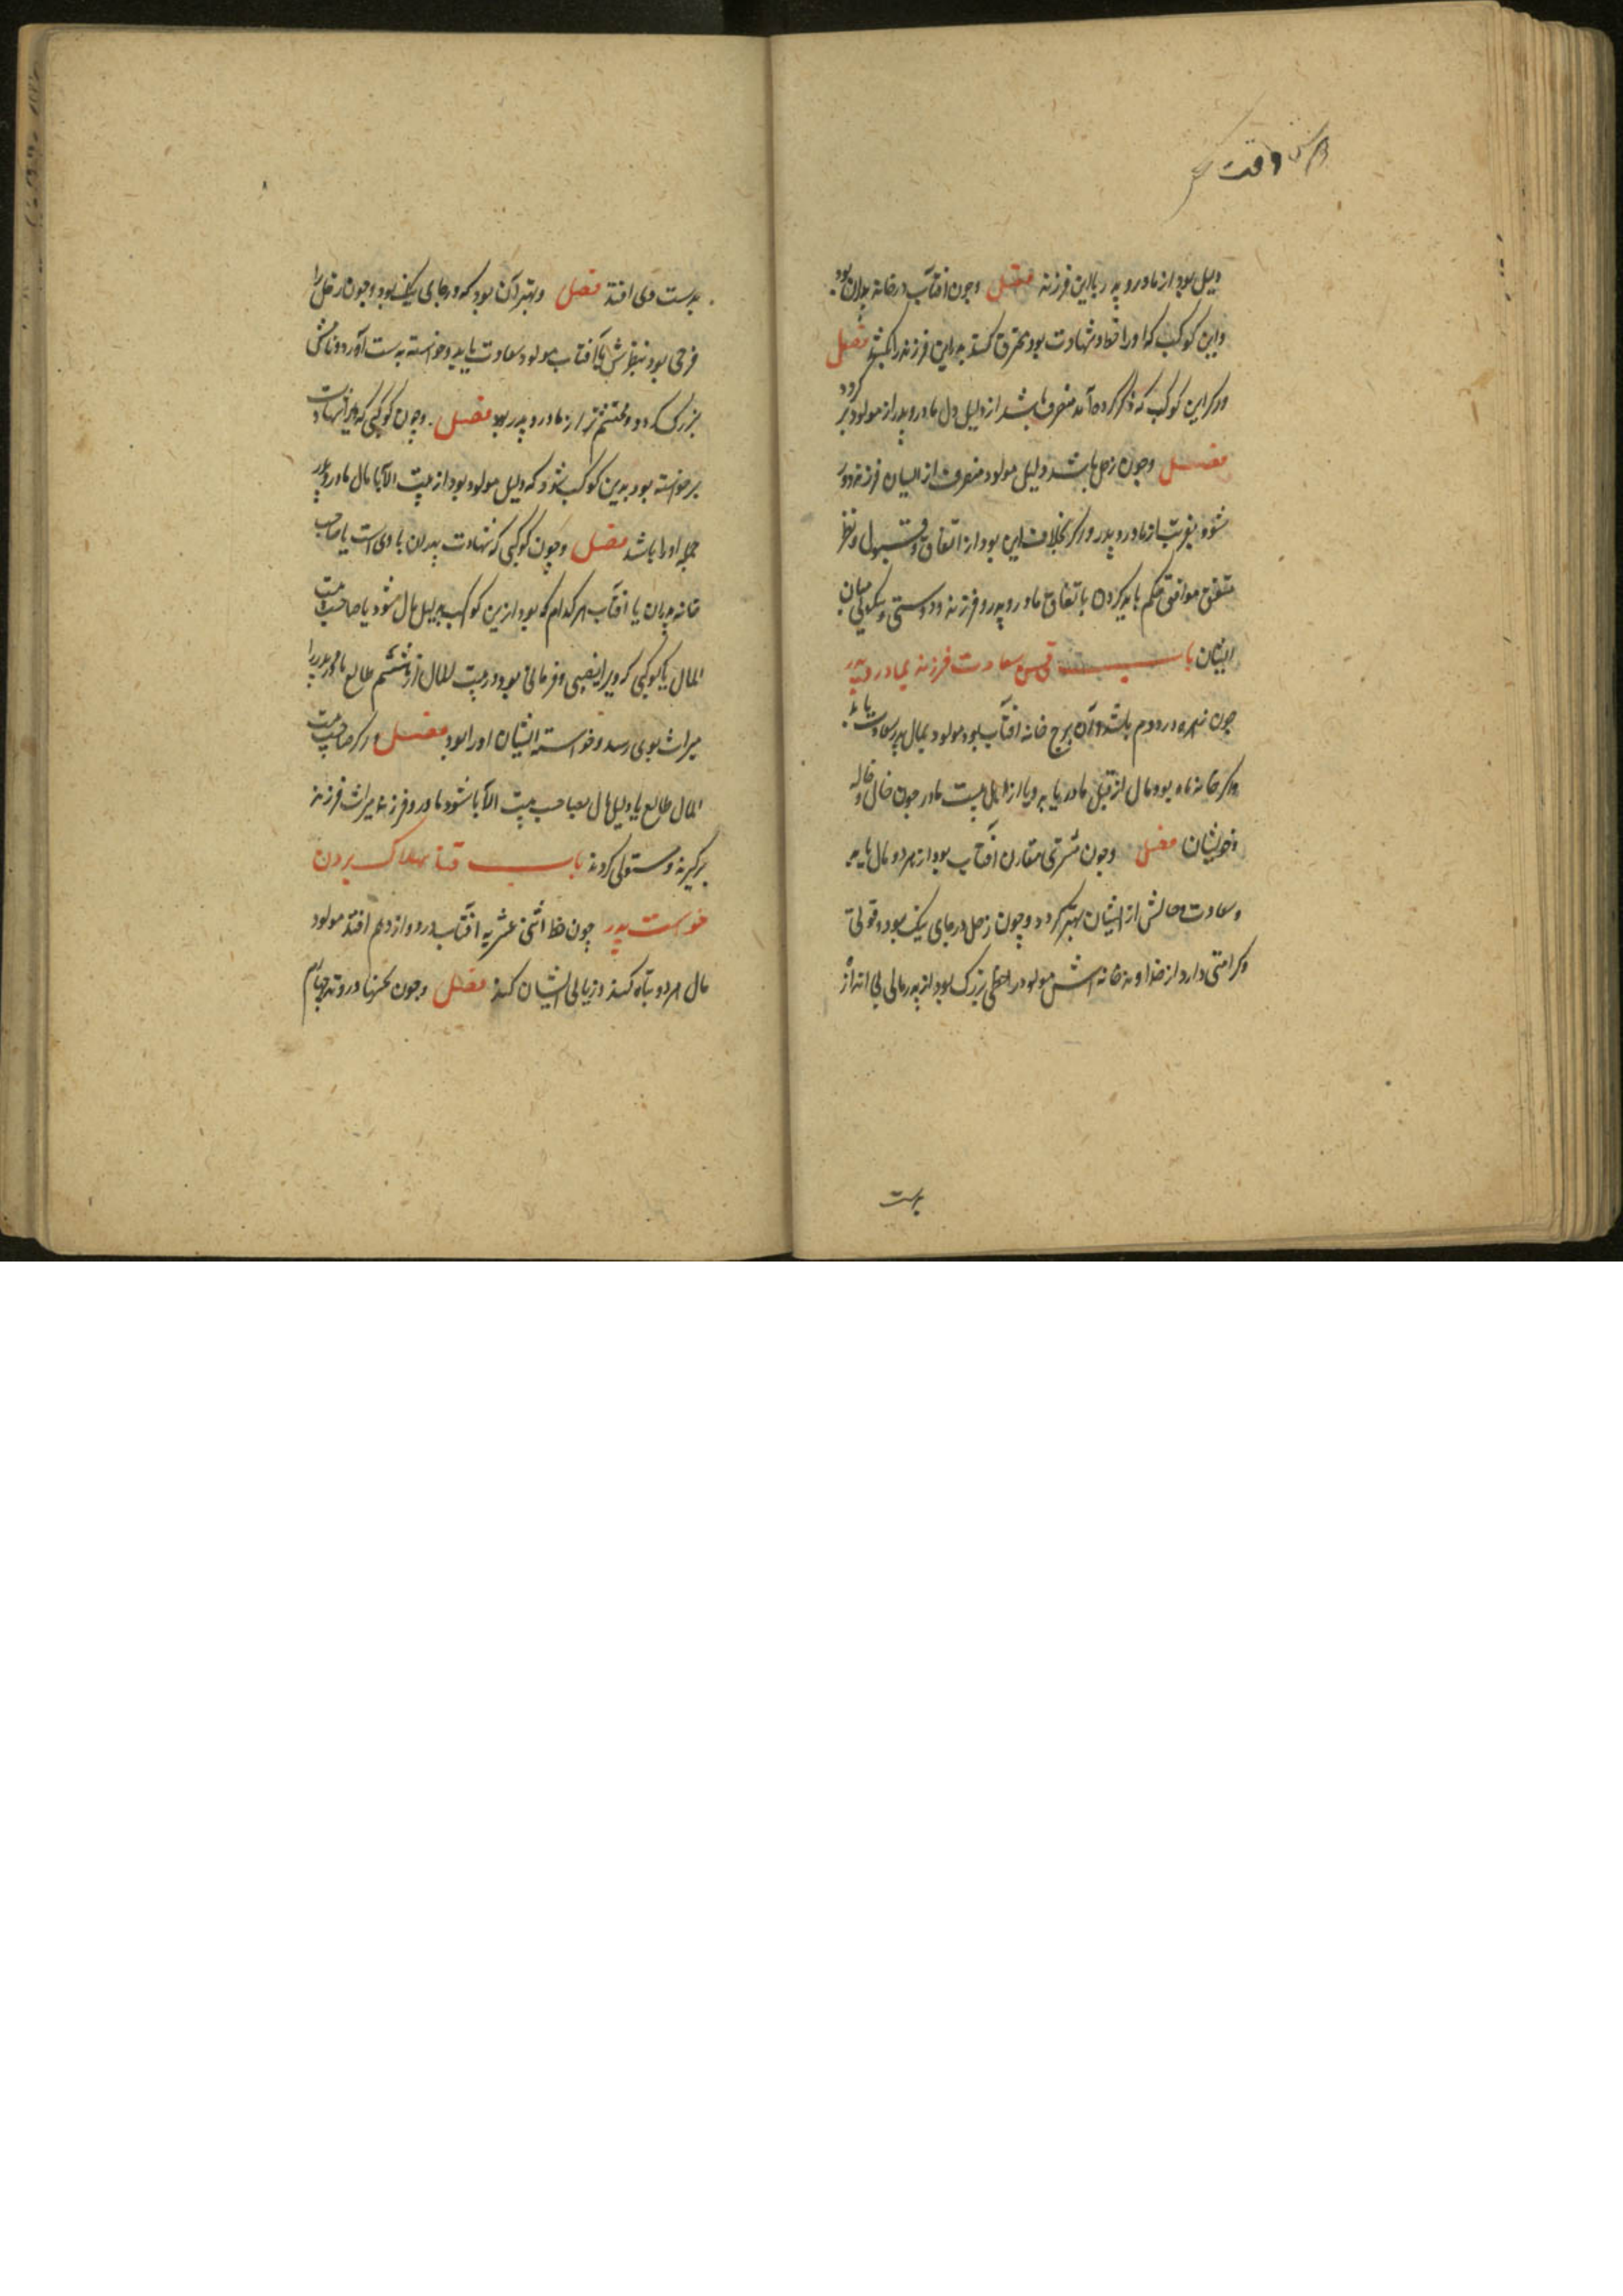 وقت
دلیل بود از مادر و پدر با این فرزند فصل وچون افتاب در خانه پدران بود
واین کوکب که او را خط و شهادت بود محترق کند پدر این فرزند را بکشد فصل
ور کر این کوکب که ذکر کرده آمد منصرف باشد از دلیل دل مادر و پدر از مولود بر کردد
فصل وچون زحل باشد دلیل مولود منصرف از ایشان فرزند دور
شود بغربت از مادر و پدر ور کر بخلاف این بود از اتفاق و قبول و نظر
متفق موافق حکم باید کردن باتفاق مادر و پدر و فرزند و دوستی و نیکویی میان
ایشان باب سعادت فرزند بمادر و پدر
چون زهره در دوم باشد و آن برج خانه افتاب بود مولود بمال پدر سعادت یابد
ور کر خانه ماه بود مال از قبل مادر یابد و یا از اهل بیت مادر چون خال و خاله
وخویشان فصل وچون مشتری مقارن افتاب بود از هر دو مال یابد
وسعادت و حالش از ایشان بهتر کردد وچون زحل در جای نیک بود و قوتی
وکرامتی دارد از خداوند خانه اش مولود را حظی بزرک بود از پدر مالی بی اندازه
بدست
بدست وی افتد فصل وبهتر آن بود که در جای نیک بود وچون زحل را
فرحی بود بنظرش با افتاب مولود سعادت یابد وخواسته بدست آورد ونامش
بزرک کردد ومحتشم تر از مادر و پدر بود فصل وچون کوکبی که ویرا شهادت
برخواسته بود بدین کوکب شود که دلیل مولود بود از بیت الآبا مال مادر و پدر
جمله او را باشد فصل وچون کوکبی که شهادت پدران با وی است یا صاحب
خانه پدران یا افتاب هر کدام که بود ازین کوکب بدلیل مال شود یا صاحب بیت
المال یا کوکبی که ویرا نصیبی وفرمانی بود در بیت المال از ششم طالع مادر و پدر را
میراث بوی رسد وخواسته ایشان او را بود فصل ور کر صاحب بیت
المال طالع یا دلیل مال بصاحب بیت الآبا شود مادر و فرزند میراث فرزند
برکیرند ومستولی کردند باب بهلاک بردن
خواست پدر چون خط اثنی عشریه افتاب در دوازدهم افتد مولود
مال هر دو تباه کند وزیانی ایشان کند فصل وچون نحسها در وتد چهارم